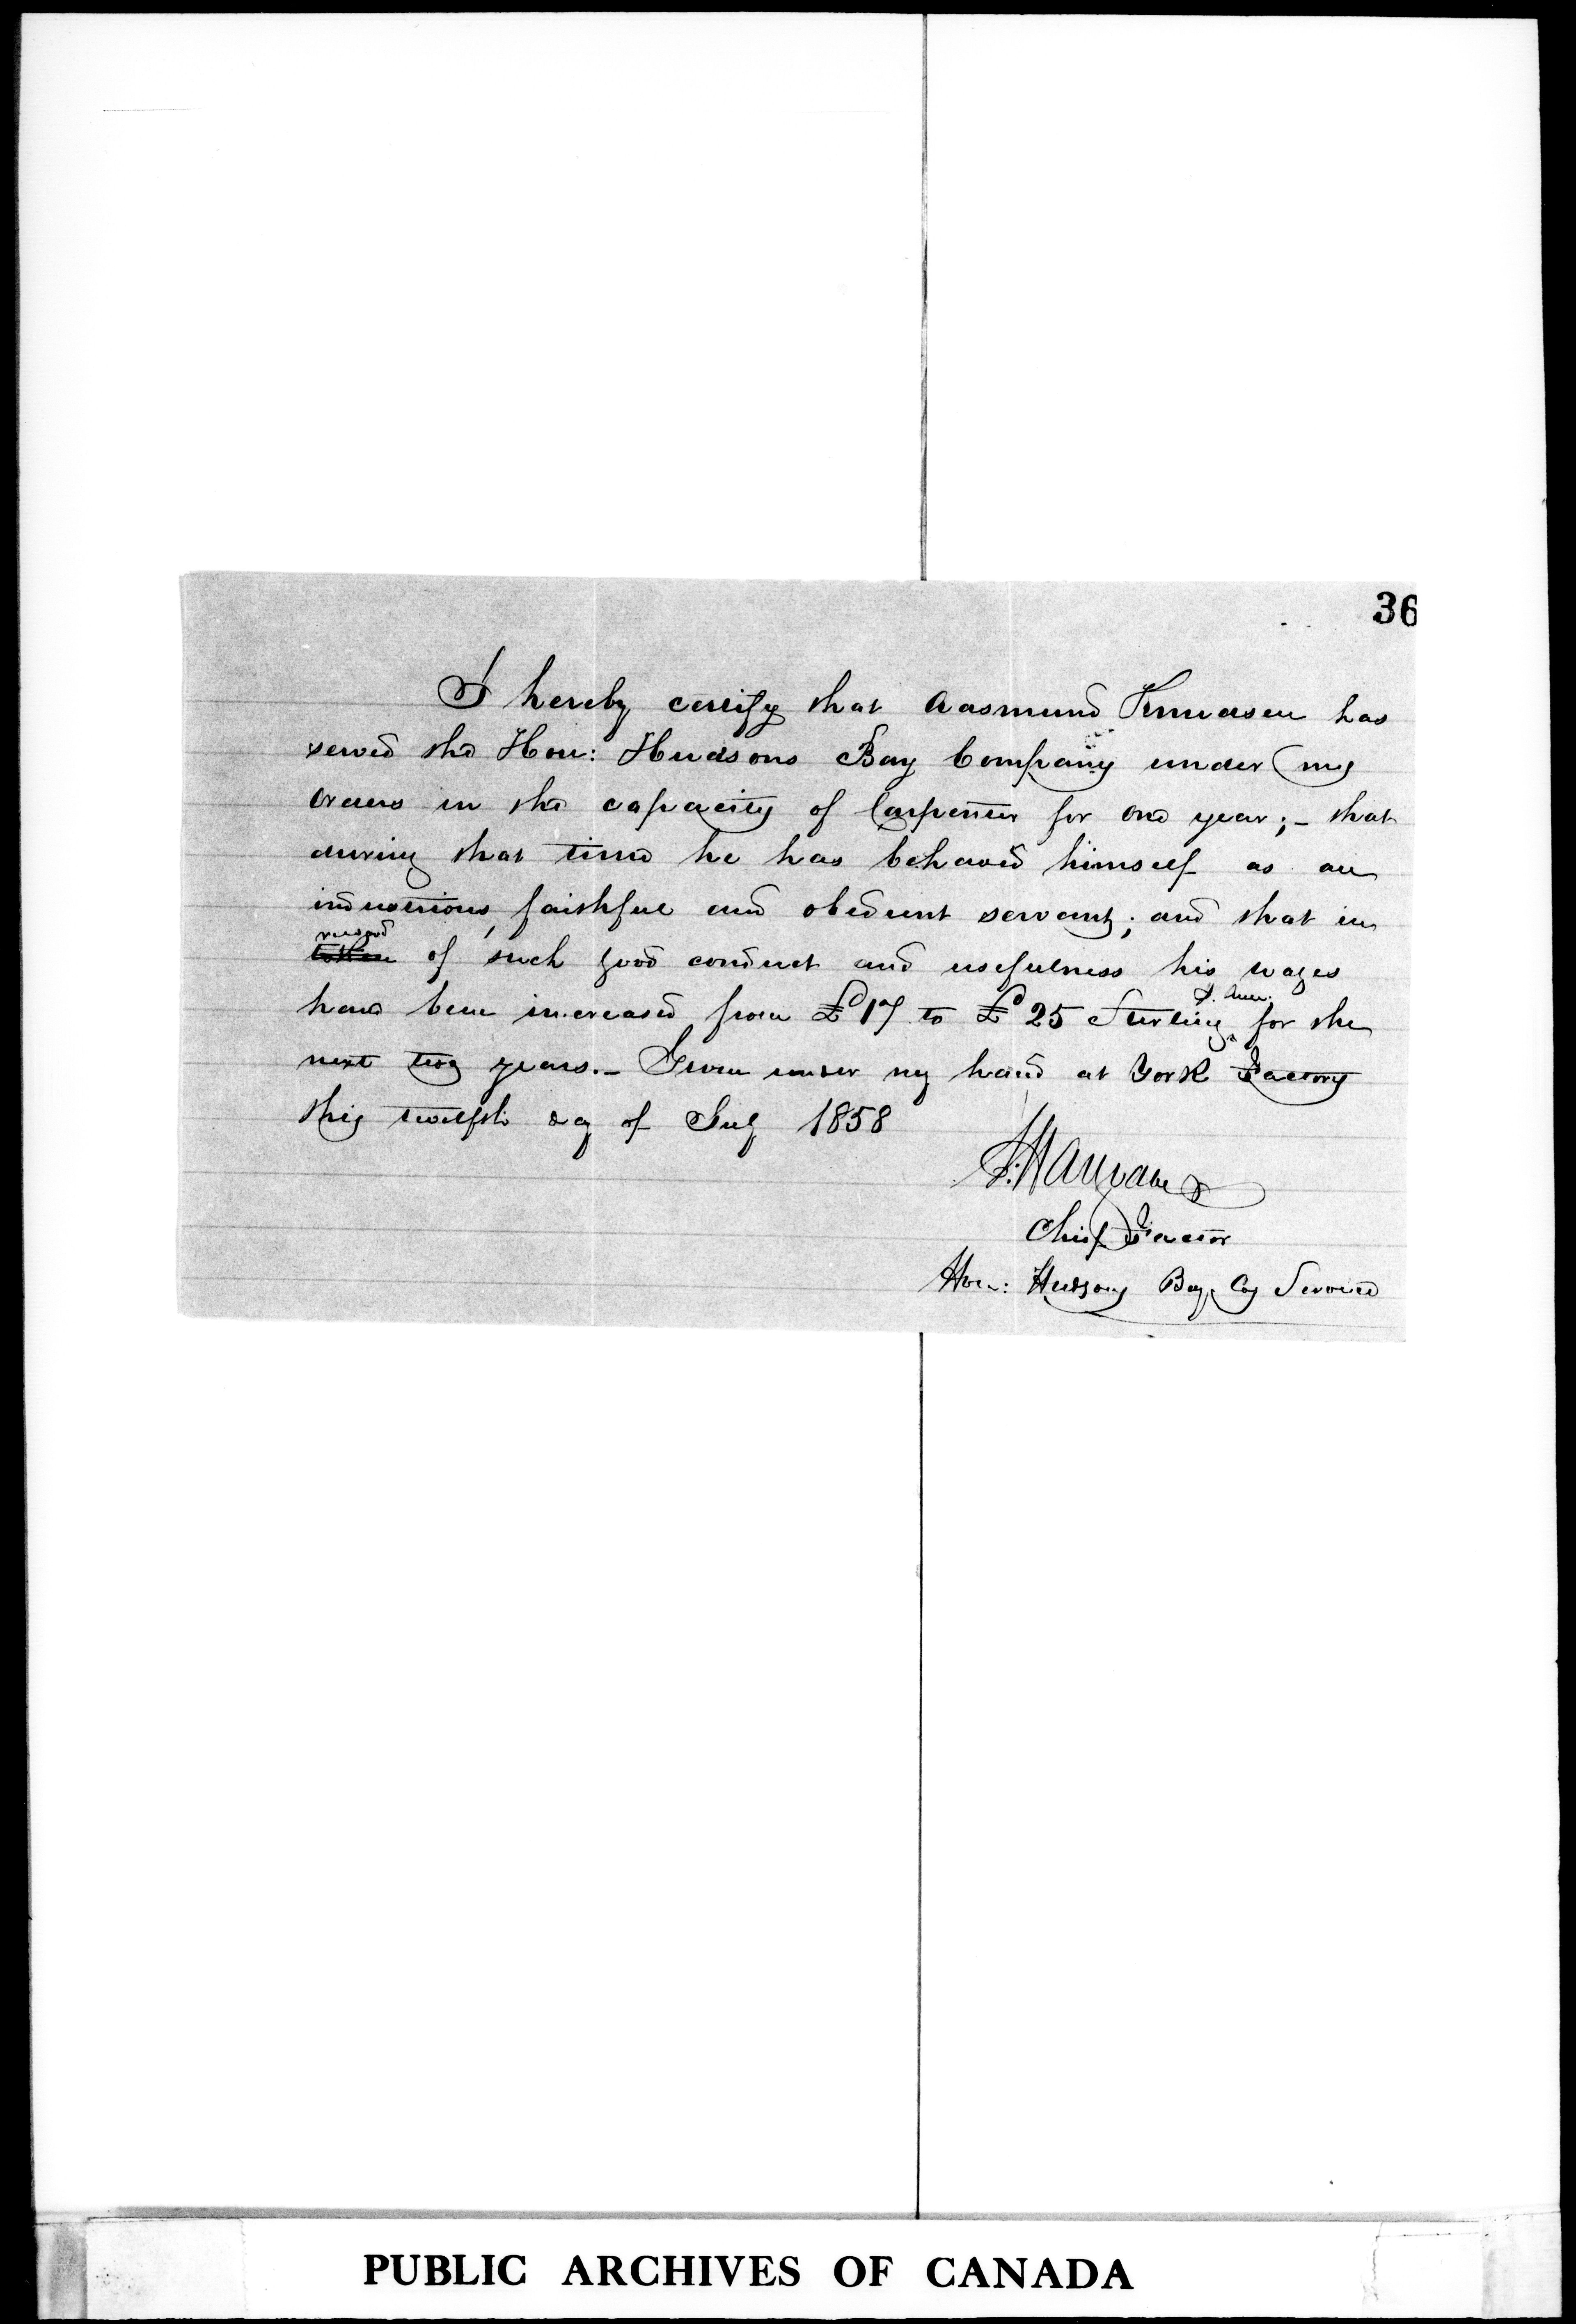 36
I hereby certify that Aasmund Knudsen has
served the Hon: Hudsons Bay Company under my
orders in the capacity of Carpenter for one year;- that
during that time he has behaved himself as an
industrious, faithful and obedient servant; and that in
reward
token of such good conduct and usefulness his wages
p. Ann.
have been increased from £17 to £25 Sterling for the
next two years.- Given under my hand at York Factory
this twelfth day of July 1858
J. Hargrave
Chief Factor
Hon: Hudsons Bay Coy Service
PUBLIC ARCHIVES OF CANADA